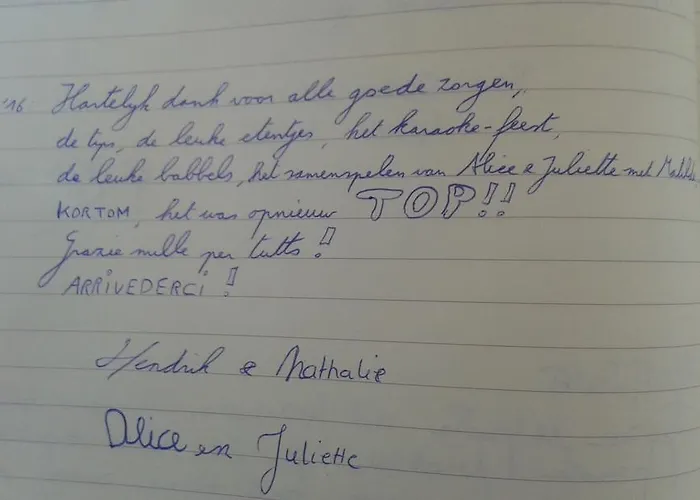 '16 Hartelijk dank voor alle goede zorgen,
de tips, de leuke etentjes, het karaoke-feest,
de leuke babbels, het samenspelen van Alice & Juliette met
KORTOM, het was opnieuw TOP!!
Grazie mille per tutto!
ARRIVEDERCI!
Hendrik & Nathalie
Alice en Juliette